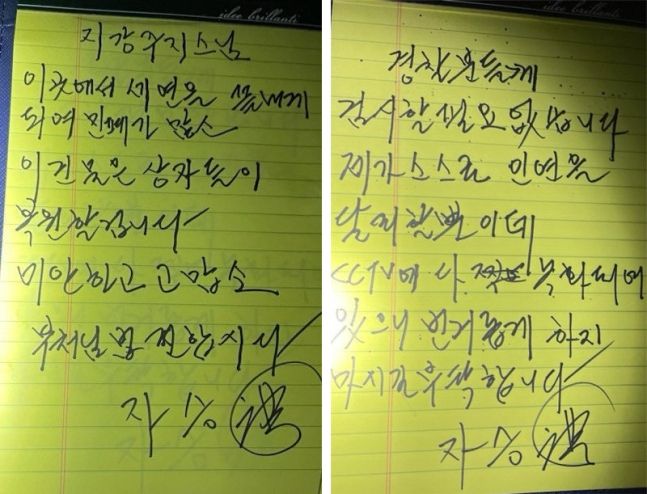 idee brillante
지강주지스님
이곳에서 세연을 끝내게
되여 민폐가 많소
이 건물은 상자들이
복원할겁니다
미안하고 고맙소
부처님법 전합시다
자승
idee brillante
경찰분들께
검시할 필요 없습니다
제가 스스로 인연을
달리할 뿐이데
CCTV에 다 녹화되여
있으니 번거롭게 하지
마시길 부탁합니다
자승